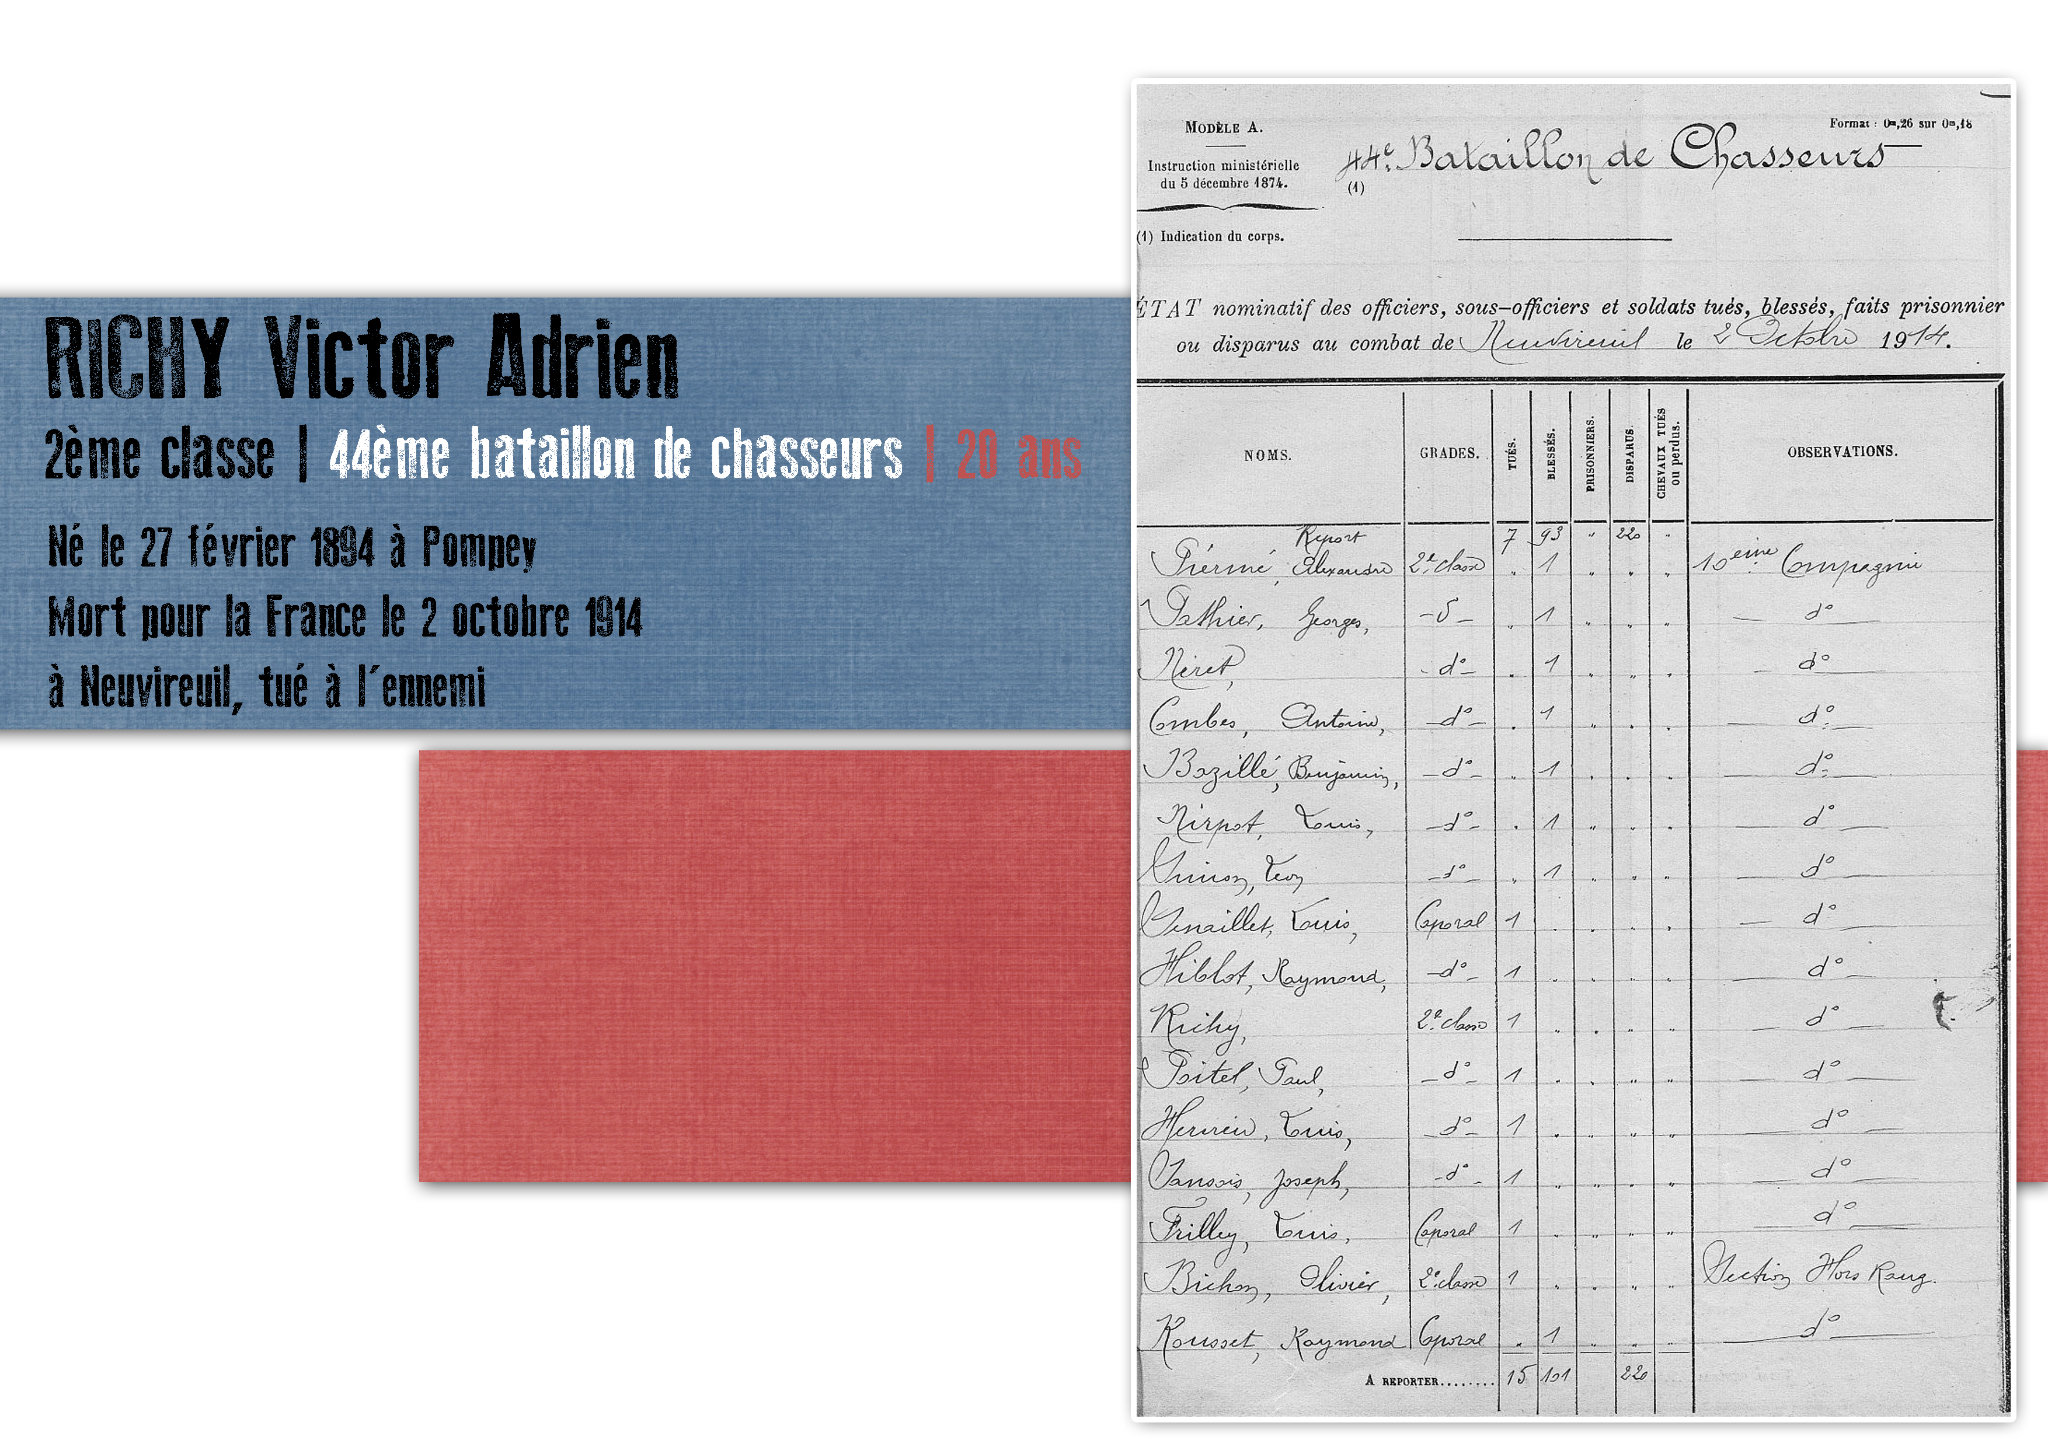 RICHY Victor Adrien
2ème classe | 44ème bataillon de chasseurs | 20 ans
Né le 27 février 1894 à Pompey
Mort pour la France le 2 octobre 1914
à Neuvireuil, tué à l'ennemi
MODÈLE A.
Instruction ministérielle
du 5 décembre 1874.
(1) Indication du corps.
44e. Bataillon de Chasseurs
(1)
Format : 0m,26 sur 0m,18
ÉTAT nominatif des officiers, sous-officiers et soldats tués, blessés, faits prisonnier
ou disparus au combat de Neuvireuil le 2 Octobre 1914.
NOMS. GRADES. TUÉS. BLESSÉS. PRISONNIERS. DISPARUS. CHEVAUX TUÉS ou perdus. OBSERVATIONS.
Report 7 93 " 220 "
Piermé, Alexandre 2e classe " 1 " " " 10eme Compagnie
Pathier, Georges, " 1 " " " — do —
Néret, — do — " 1 " " " — do —
Combes, Antoine, — do — " 1 " " " — do —
Bazillé, Benjamin, — do — " 1 " " " — do —
Nirpot, Louis, — do — " 1 " " " — do —
Simon, Léon — do — " 1 " " " — do —
Louis, Caporal 1 " " " " — do —
Hiblot, Raymond, — do — 1 " " " " — do —
Richy, 2e classe 1 " " " " — do —
Poitel, Paul, — do — 1 " " " " — do —
Louis, — do — 1 " " " " — do —
Joseph, — do — 1 " " " " — do —
Frilley, Louis, Caporal 1 " " " " — do —
Bichon, Olivier, 2e classe 1 " " " " Section Hors Rang.
Rousset, Raymond Caporal " 1 " " " — do —
A REPORTER........ 15 101 220